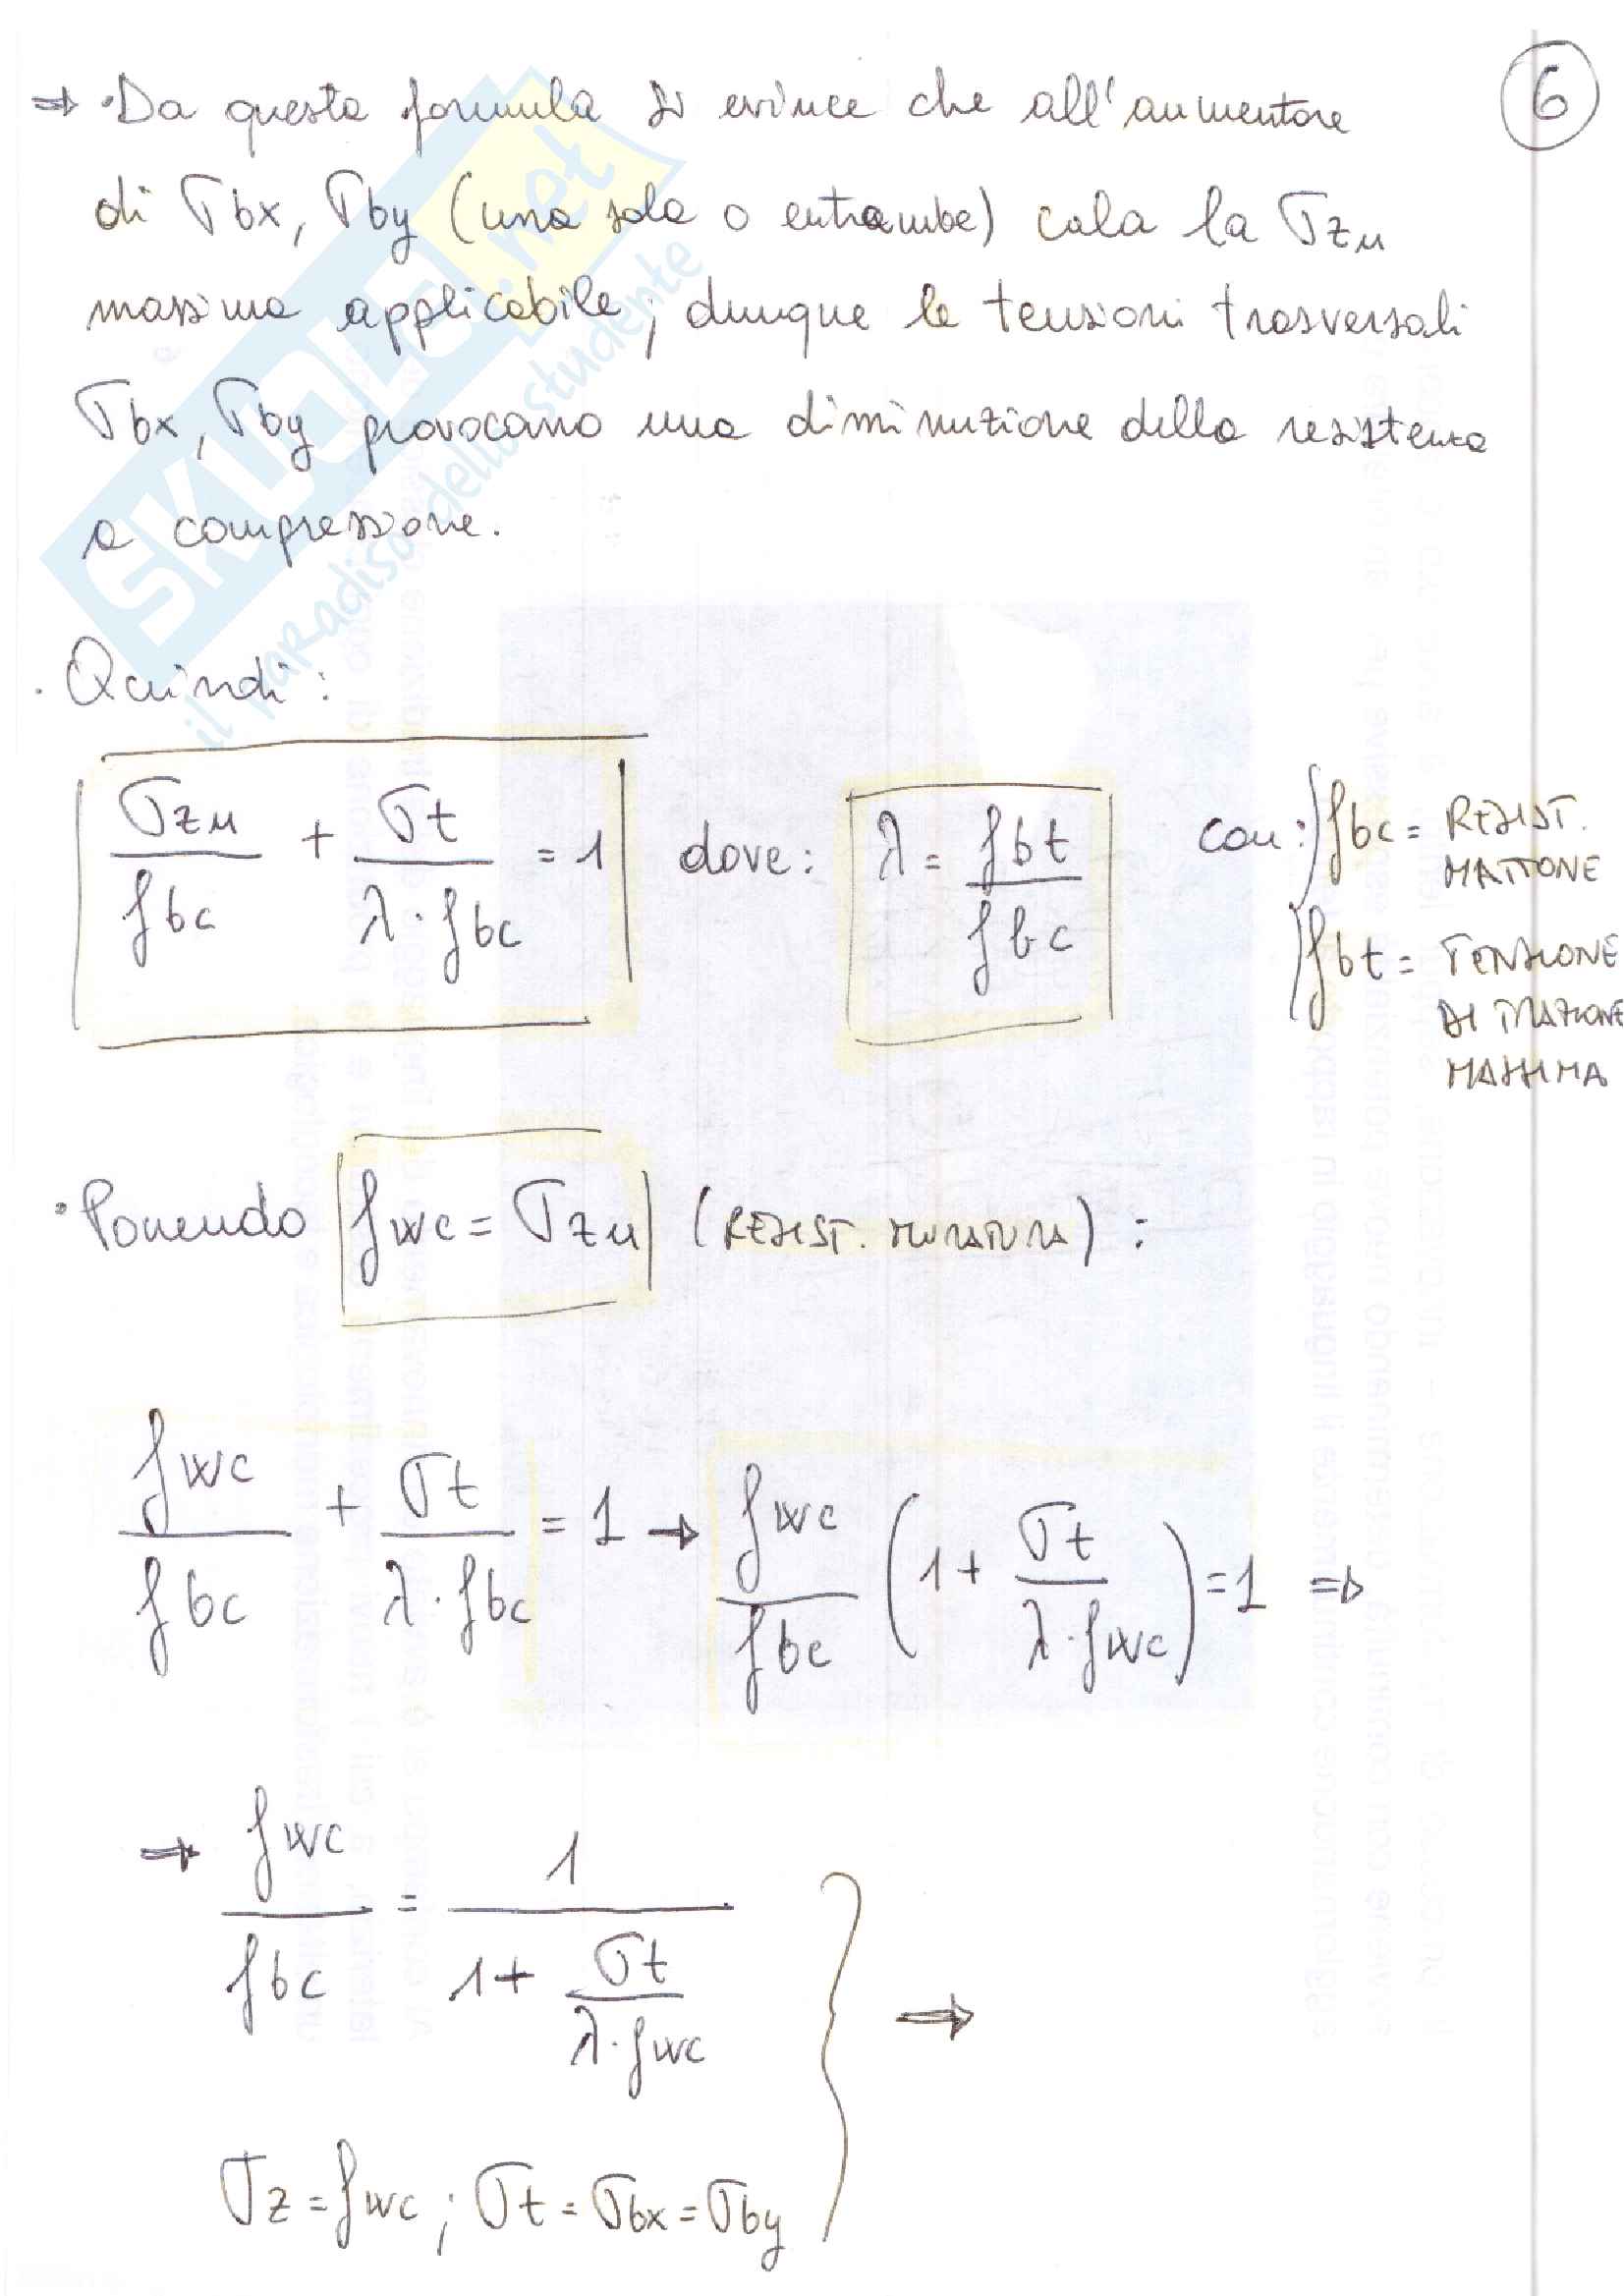 6
⇒ • Da questa formula si evince che all'aumentare
di σbx, σby (una sola o entrambe) cala la σzu
massima applicabile; dunque le tensioni trasversali
σbx, σby provocano una diminuzione della resistenza
a compressione.
SKUOLA.net
il paradiso dello studente
• Quindi:
σzu/fbc + σt/(λ·fbc) = 1 dove: λ = fbt/fbc con: fbc = RESIST.
MATTONE
fbt = TENSIONE
DI TRAZIONE
MASSIMA
• Ponendo fwc = σzu (RESIST. MURATURA):
fwc/fbc + σt/(λ·fbc) = 1 → fwc/fbc (1 + σt/(λ·fwc)) = 1 ⇒
⇒ fwc/fbc = 1/(1 + σt/(λ·fwc)) } ⇒
σz = fwc; σt = σbx = σby